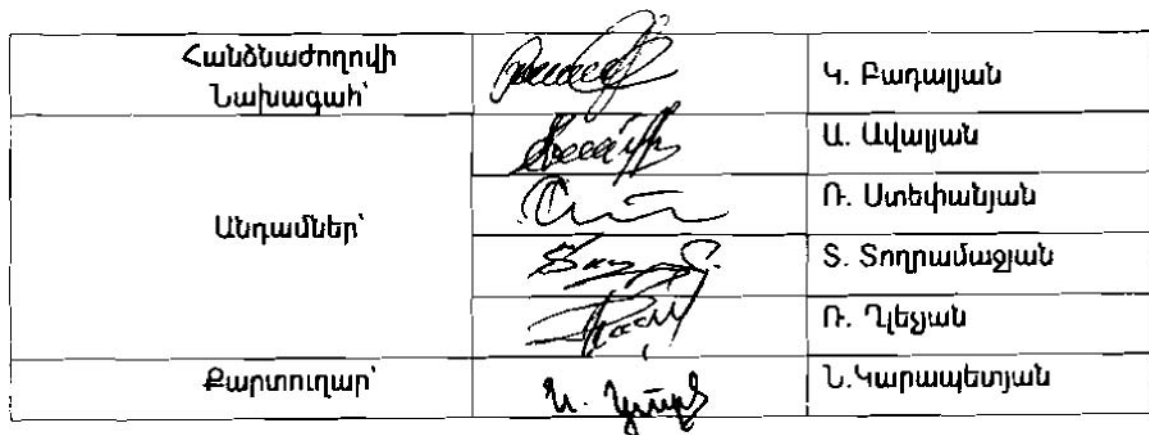 Հանձնաժողովի
Նախագահ՝
Կ. Բադալյան
Ա. Ավալյան
Անդամներ՝
Ռ. Ստեփանյան
Տ. Տողրամաջյան
Ռ. Ղլեչյան
Քարտուղար՝
Ն.Կարապետյան